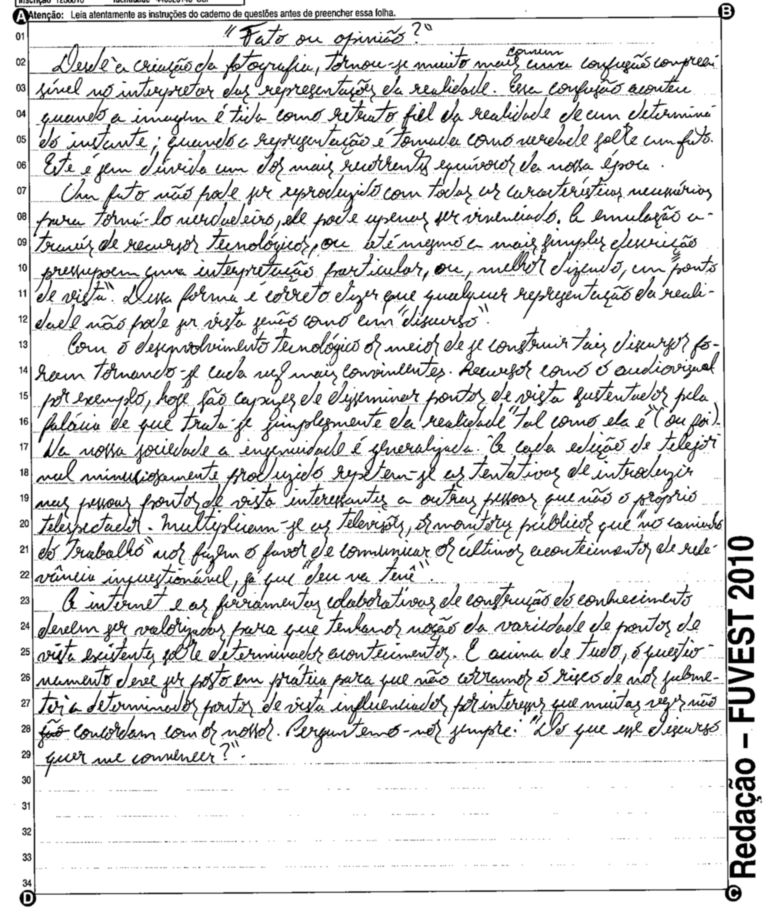 Atenção: Leia atentamente as instruções do caderno de questões antes de preencher essa folha.
A
B
01 "Fato ou opinião?"
02 Desde a criação da fotografia, tornou-se muito mais comum uma confusão compreen
03 sível no interpretar das representações da realidade. Essa confusão aconteu
04 quando a imagem é tida como retrato fiel da realidade de um determina
05 do instante; quando a representação é tomada como verdade sobre um fato.
06 Este é sem dúvida um dos mais recorrentes equívocos da nossa época.
07 Um fato não pode ser reproduzido com todas as características necessárias
08 para torná-lo verdadeiro, ele pode apenas ser vivenciado. A emulação a-
09 través de recursos tecnológicos, ou até mesmo a mais simples descrição
10 pressupoem uma interpretação particular, ou, melhor dizendo, um "ponto
11 de vista". Dessa forma é correto dizer que qualquer representação da reali-
12 dade não pode ser vista senão como um "discurso".
13 Com o desenvolvimento tecnológico os meios de se construir tais discursos fo-
14 ram tornando-se cada vez mais convincentes. Recursos como o audiovisual
15 por exemplo, hoje são capazes de disseminar pontos de vista sustentados pela
16 falácia de que trata-se simplesmente da realidade "tal como ela é" (ou foi).
17 Na nossa sociedade a ingenuidade é generalizada. A cada edição de telejor
18 nal minuciosamente produzido repetem-se as tentativas de introduzir
19 nas pessoas pontos de vista interessantes a outras pessoas que não o próprio
20 telespectador. Multiplicam-se as televisões, os monitores públicos que "no caminho
21 do trabalho" nos fazem o favor de comunicar os últimos acontecimentos de rele-
22 vância inquestionável, já que "deu na tevê".
23 A internet e as ferramentas colaborativas de construção do conhecimento
24 devem ser valorizadas para que tenhamos noção da variedade de pontos de
25 vista existentes sobre determinados acontecimentos. E acima de tudo, o questio-
26 namento deve ser posto em prática para que não corramos o risco de nos subme-
27 ter a determinados pontos de vista influenciados por interesses que muitas vezes não
28 são concordam com os nossos. Perguntemo-nos sempre: "Do que esse discurso
29 quer me convencer?".
30
31
32
33
34
D
C
Redação – FUVEST 2010